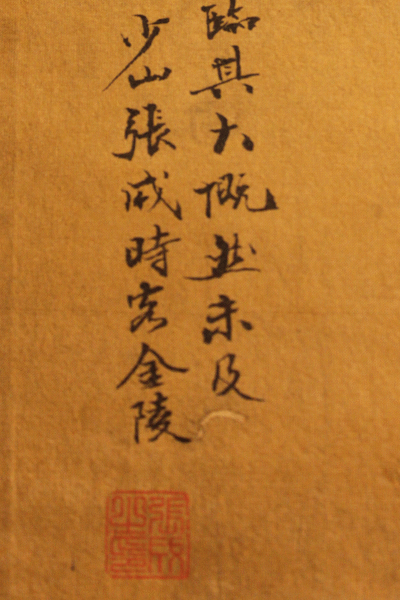 臨其大概然未及
少山張成時客金陵